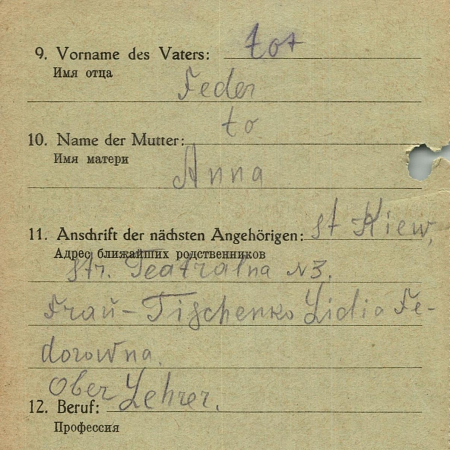 9. Vorname des Vaters: tot
Имя отца
Feder
to
10. Name der Mutter:
Имя матери
Anna
11. Anschrift der nächsten Angehörigen: st Kiew,
Адрес ближайших родственников
str. Teatralna N3.
Frau - Tischenko Lidia Fe-
dorowna.
Ober Lehrer.
12. Beruf:
Профессия